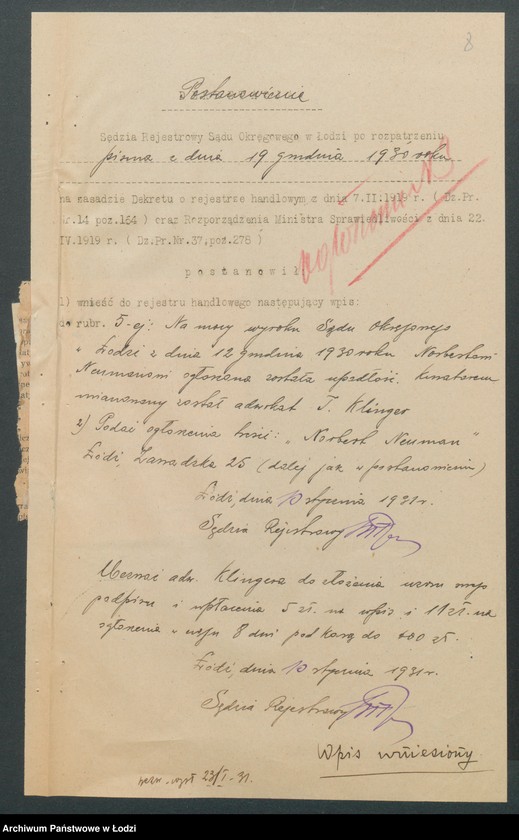 8
Postanowienie
Sędzia Rejestrowy Sądu Okręgowego w Łodzi po rozpatrzeniu
pisma z dnia 19 grudnia 1930 roku
na zasadzie Dekretu o rejestrze handlowym z dnia 7.II.1919 r. ( Dz.Pr.
Nr.14 poz.164 ) oraz Rozporządzenia Ministra Sprawiedliwości z dnia 22.
IV.1919 r. ( Dz.Pr.Nr.37,poz.276 )
postanowił:
1) wnieść do rejestru handlowego następujący wpis:
do rubr. 5-ej: Na mocy wyroku Sądu Okręgowego
w Łodzi z dnia 12 grudnia 1930 roku Norbertowi
Neumanowi ogłoszona została upadłość. Kuratorem
mianowany został adwokat J. Klinger
2) Podać ogłoszenia treść: „Norbert Neuman"
Łódź, Zawadzka 25 (dalej jak w postanowieniu)
Łódź, dnia 10 stycznia 1931 r.
Sędzia Rejestrowy
Wezwać adw. Klingera do złożenia wzoru swego
podpisu i wpłacenia 5 zł. na wpis i 11 zł. na
ogłoszenie w ciągu 8 dni pod karą do 100 zł.
Łódź, dnia 10 stycznia 1931 r.
Sędzia Rejestrowy
Wpis wniesiony
wezw. wysł 23/I-31.
Archiwum Państwowe w Łodzi